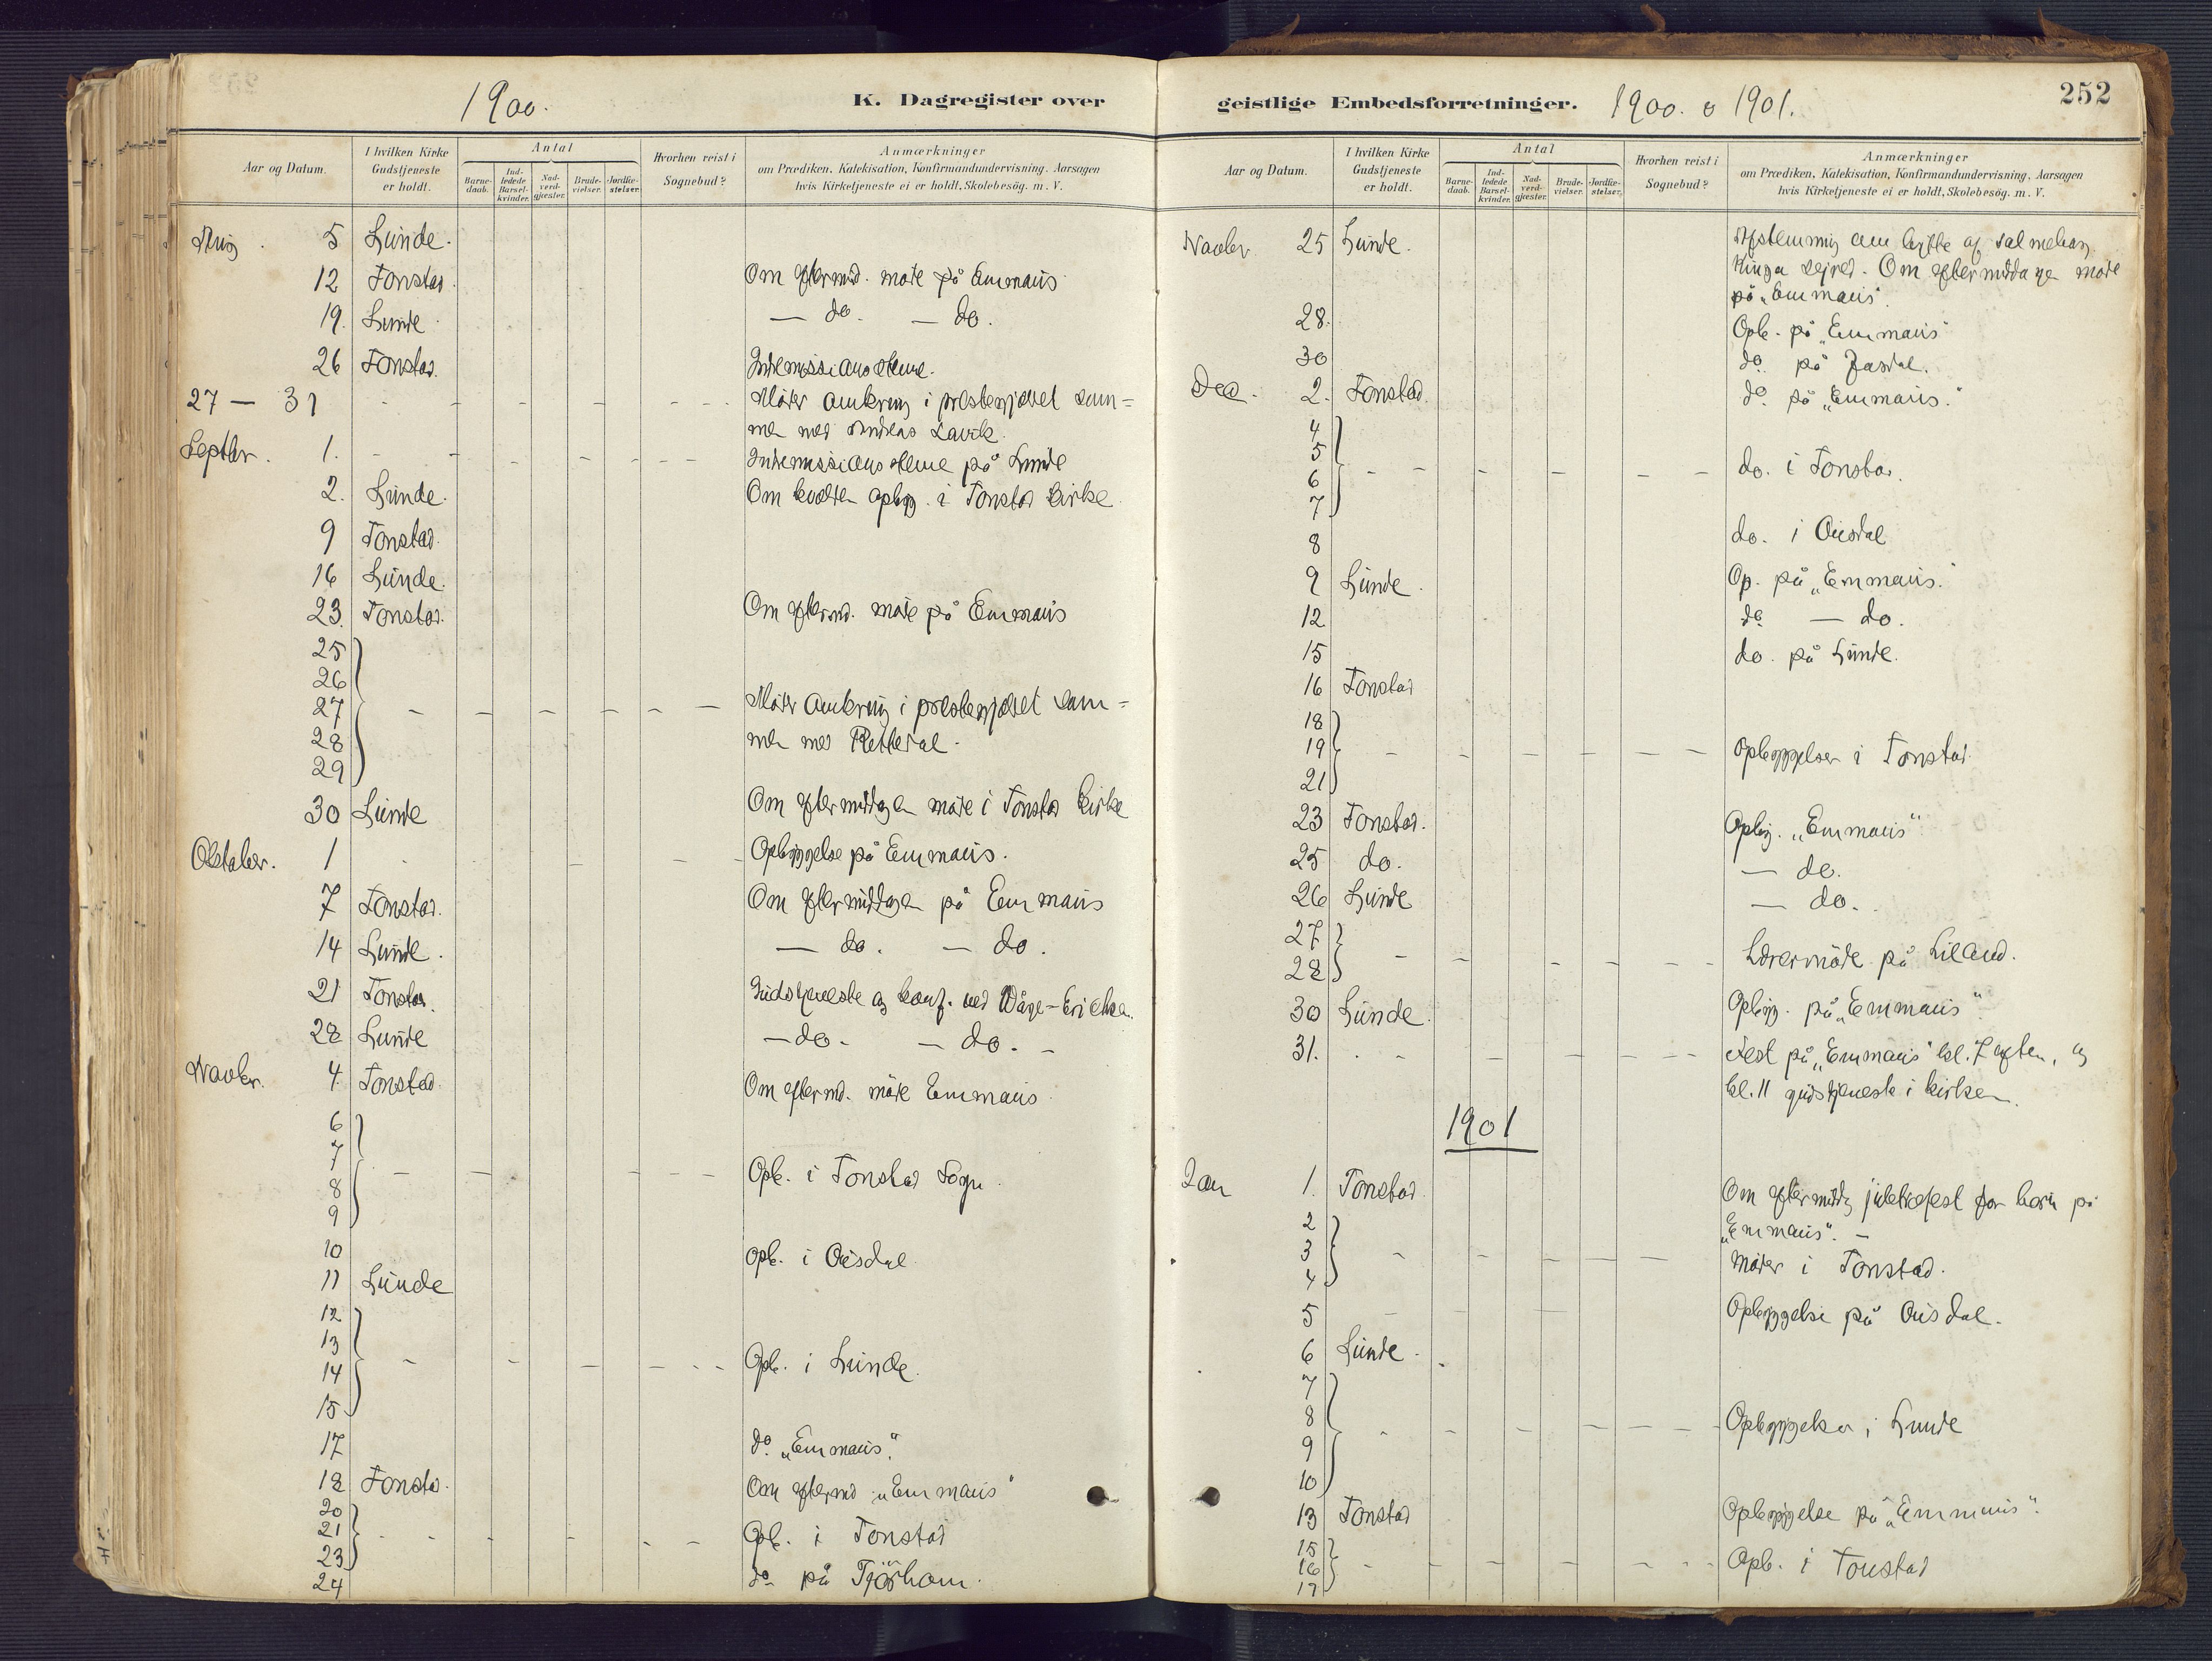 1900.
K. Dagregister over
Aar og Datum.
I hvilken Kirke Gudstjeneste er holdt.
Antal
Barnedaab.
Indledede Barselkvinder.
Nadverdgjæster.
Brudevielser.
Jordfæstelser.
Hvorhen reist i Sognebud?
Anmærkninger
om Prædiken, Katekisation, Konfirmandundervisning, Aarsagen
hvis Kirketjeneste ei er holdt, Skolebesög. m. V.
Aug. 5 Lunde.
12 Tonstad Om eftermd. möte på Emmaus
19. Lunde. — do. — do.
26 Tonstad. Indremissionsstevne.
27 — 31 - - - - - - - Möter omkring i prestegjældet sam=
men med Andreas Lavik.
Septbr. 1. - - - - - - - Indremissionsstevne på Lunde
2. Lunde. Om kvælden opbyg. i Tonstad kirke
9 Tonstad.
16 Lunde.
23. Tonstad. Om eftermd. möte på Emmaus
25
26
27 - - - - - - Möter omkring i prestegjældet sam=
28 men med
29
30 Lunde Om eftermiddagen möte i Tonstad kirke
Oktober. 1 - - - - Opbyggelse på Emmaus.
7 Tonstad. Om eftermiddagen på Emmaus
14 Lunde. — do. — do.
21 Tonstad. Gudstjeneste og konf. ved Våge-Ericksen.
28 Lunde — do. — do. -
Novbr. 4. Tonstad Om eftermd. möte Emmaus
6
7
8 - - - - - Opb. i Tonstad Sogn.
9
10 Opb. i Ousdal
11 Lunde
12
13
14 - - - - - - Opb. i Lunde.
15
17 do. „Emmaus“.
18 Tonstad. Om eftermd „Emmaus“
20
21 - - - - - - Opb. i Tonstad
23
24 do. på Tjörhom.
geistlige Embedsforretninger.
1900. o 1901.
252
Aar og Datum.
I hvilken Kirke Gudstjeneste er holdt.
Antal
Barnedaab.
Indledede Barselkvinder.
Nadverdgjæster.
Brudevielser.
Jordfæstelser.
Hvorhen reist i Sognebud?
Anmærkninger
om Prædiken, Katekisation, Konfirmandundervisning, Aarsagen
hvis Kirketjeneste ei er holdt, Skolebesög. m. V.
Novbr 25 Lunde. Afstemning om bytte af salmebog.
Om eftermiddagen möte
på „Emmaus“.
28. Opb. på „Emmaus“
30 do. på Josdal.
Dec. 2. Tonstad. do. på „Emmaus.“
4
5
6 - - - - - - do. i Tonstad.
7
8 do. i Ousdal
9 Lunde. Op. på „Emmaus.“
12 do. — do.
15 do. på Lunde.
16 Tonstad
18
19 - - - - - - - Opbyggelser i Tonstad.
21
23 Tonstad. Opbyg. „Emmaus“
25 do. — do.
26 Lunde — do.
27
28 - - - - - - - Lærermöte på Liland.
30 Lunde. Opbyg. på „Emmaus“.
31. - - - - - - - Fest på „Emmaus“ kl. 7 aften, og
kl. 11 gudstjeneste i kirken.
1901
Jan 1. Tonstad. Om eftermiddag juletrefest for börn på
„Emmaus“. -
2
3 - - - - - - - Möter i Tonstad.
4
5 - - - - - Opbyggelse på Ousdal.
6 Lunde.
7
8
9 - - - - - - - Opbyggelser i Lunde
10
13 Tonstad Opbyggelse på „Emmaus“.
15
16 - - - - - - - Opb. i Tonstad
17